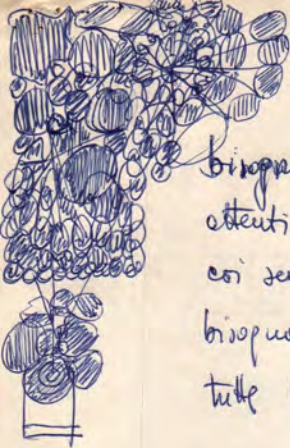 bisogna
attenti
coi se
bisogno
tutte